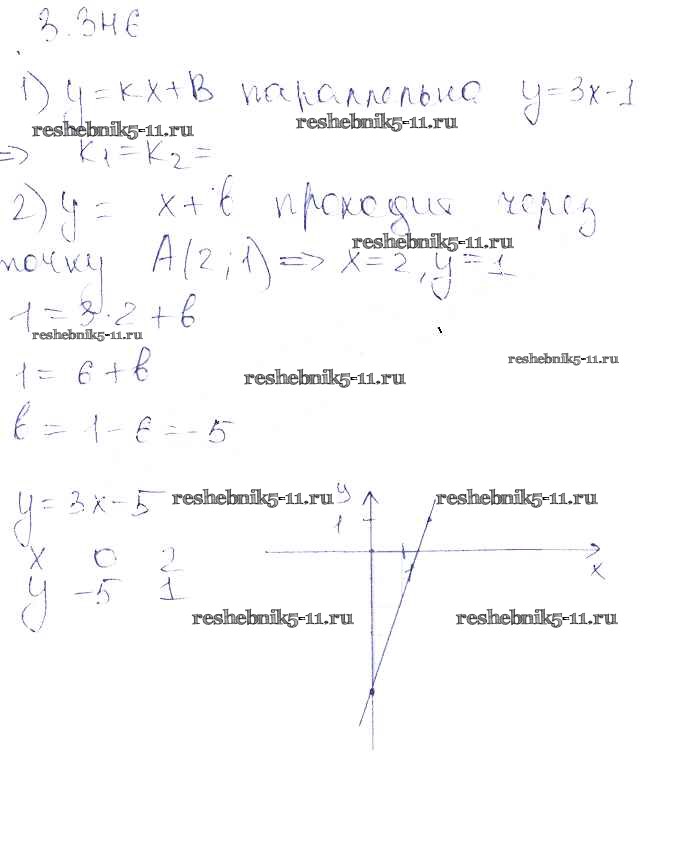 3.3 Н6
1) y = kx + b параллельна y = 3x - 1
reshebnik5-11.ru reshebnik5-11.ru
=> K₁ = K₂ =
2) y = x + b проходит через
reshebnik5-11.ru
точку A(2; 1) => x = 2, y = 1
1 = 3 · 2 + b
reshebnik5-11.ru
reshebnik5-11.ru
1 = 6 + b
reshebnik5-11.ru
b = 1 - 6 = -5
y = 3x - 5 reshebnik5-11.ru y reshebnik5-11.ru
1
x 0 2
1 x
y -5 1
reshebnik5-11.ru reshebnik5-11.ru